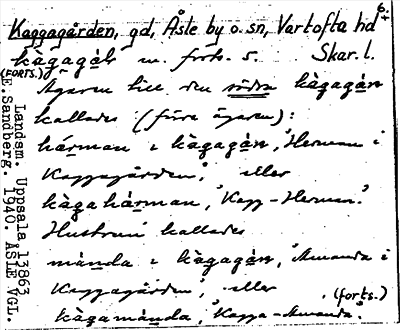 6.+
Kaggagården, gd, Åsle by o. sn, Vartofta hd
kàgagáḷ m. forts. 5. Skar. l.
(FORTS.) Ägaren till den södra kàgagáṇ
kallades (förre ägaren):
hárman i kàgagáṇ, "Herman i
Kaggagården", eller
kàgahárman, "Kagg-Herman".
Hustrun kallades
mànda i kàgagáṇ, "Amanda i
Kaggagården", eller (forts.)
kàgamànda, "Kagga-Amanda".
Landsm. Uppsala 13863
E. Sandberg. 1940. ÅSLE VGL.